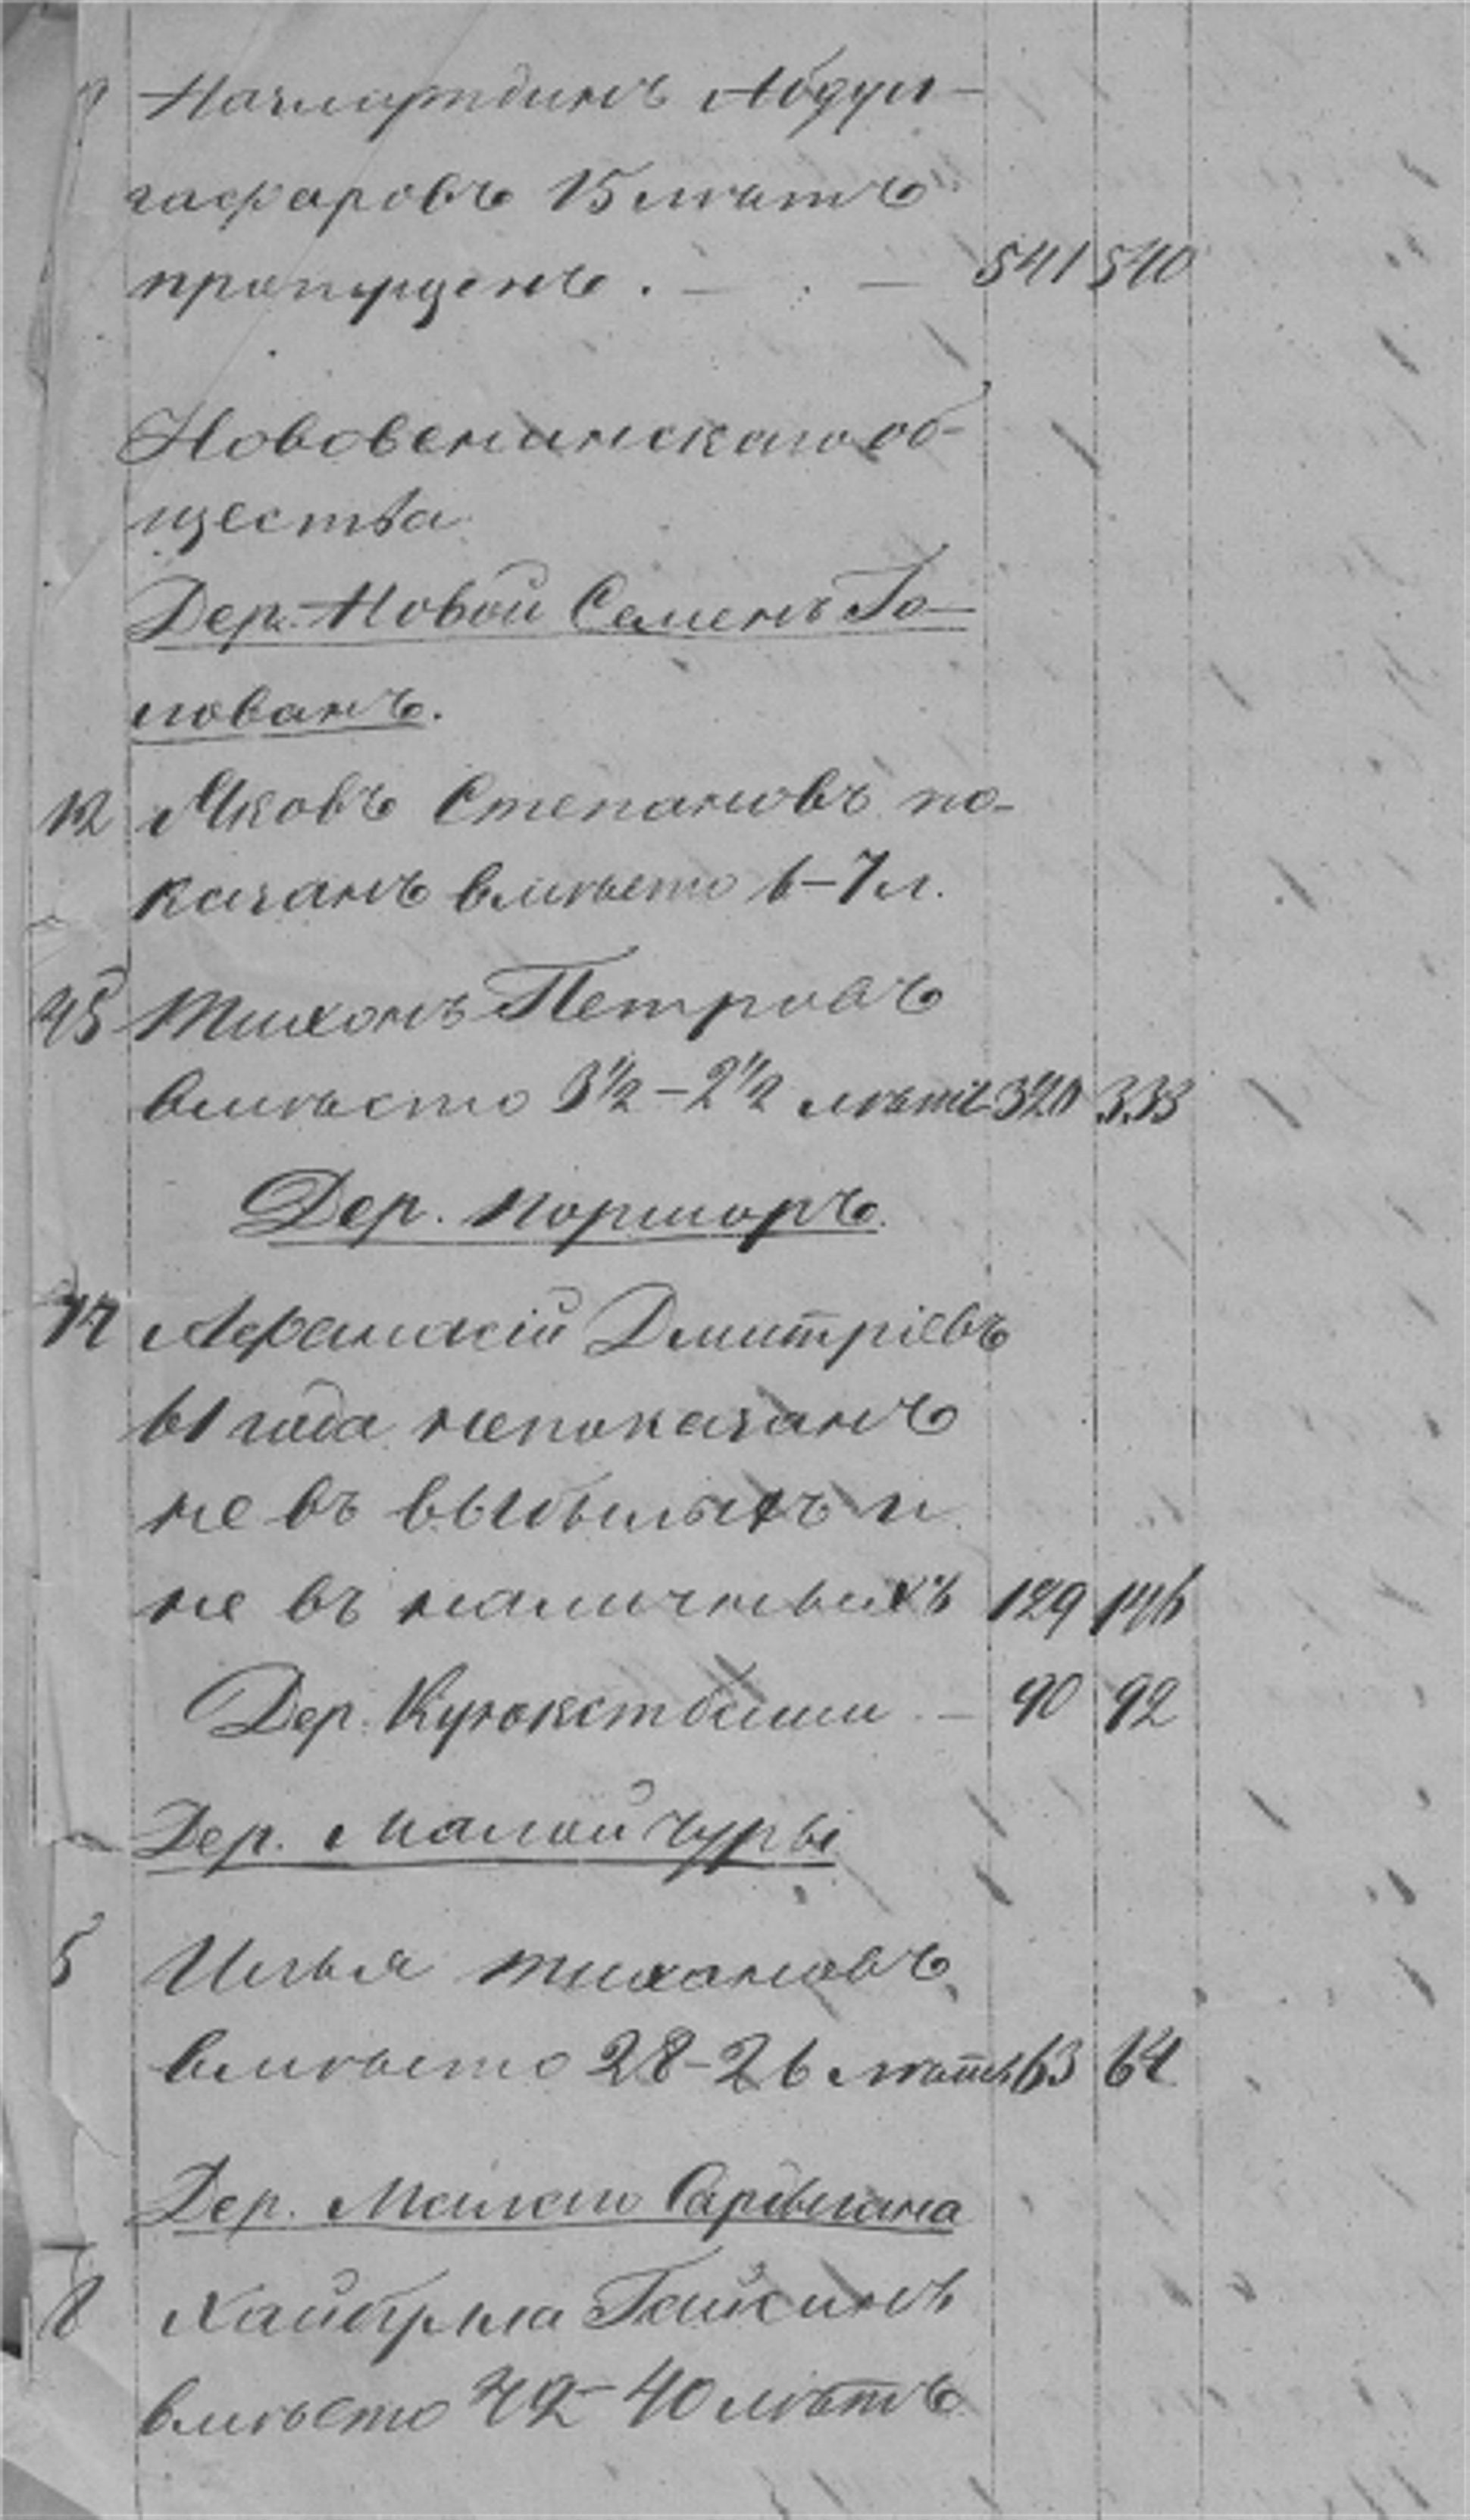 9 Назмутдинъ Абдул-
гафаровъ 15 лѣтъ
пропущенъ . — . — 541 540
Нововенинскаго об-
щества
Дер. Новой Семенъ Го-
лованъ.
12 Яковъ Степановъ по-
казанъ вмѣсто 6-7 л.
45 Тихонъ Петровъ
вмѣсто 3½-2½ лѣтъ 320 333
Дер. Поршоръ.
14 Афанасій Дмитріевъ
61 года непоказанъ
не въ выбылыхъ и
не въ наличныхъ 129 146
Дер. — 90 92
Дер. Малой Чуры
5 Илья Тихановъ
вмѣсто 28-26 лѣтъ 63 64
Дер. Малой
8 Хайбулла Гайсинъ
вмѣсто 42-40 лѣтъ